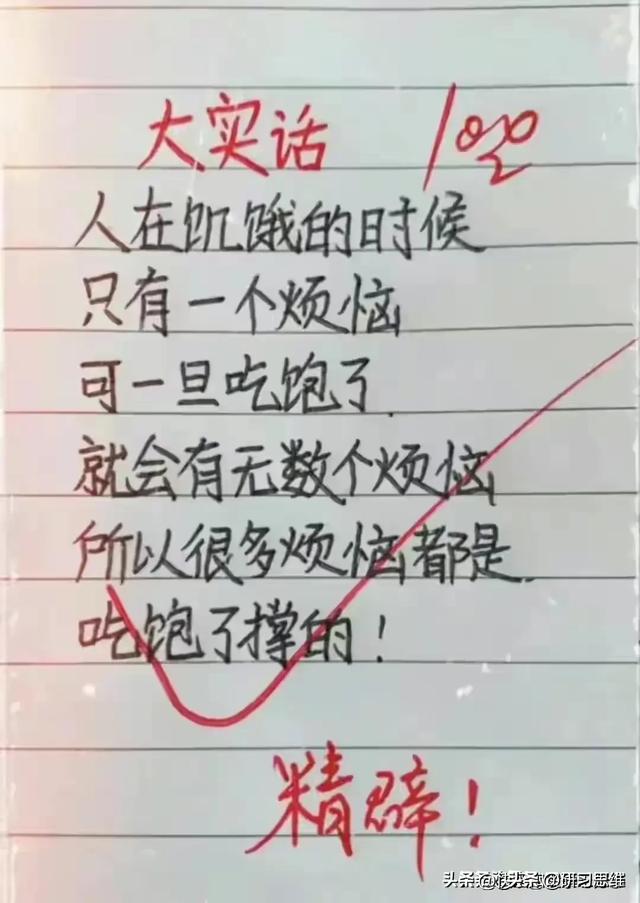 大实话 100
人在饥饿的时候
只有一个烦恼
可一旦吃饱了
就会有无数个烦恼
所以很多烦恼都是
吃饱了撑的！
精辟！
头条 @研习思维